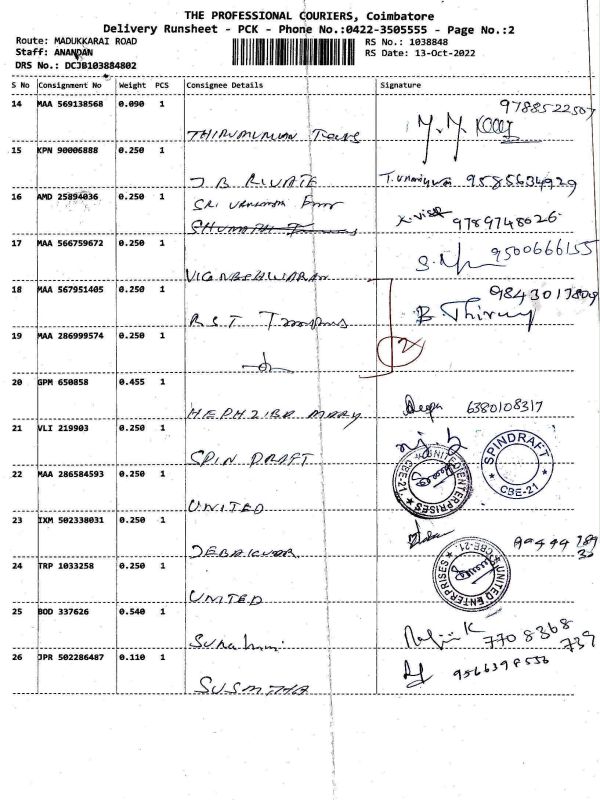 THE PROFESSIONAL COURIERS, Coimbatore
Delivery Runsheet - PCK - Phone No.:0422-3505555 - Page No.:2
Route: MADUKKARAI ROAD
RS No.: 1038848
Staff: ANANDAN
RS Date: 13-Oct-2022
DRS No.: DCJB103884802
S No Consignment No Weight PCS Consignee Details Signature
14 MAA 569138568 0.090 1
9788522507
THIRUMURUGAN
15 KPN 90006888 0.250 1
J B PRIVATE
9585634929
16 AMD 25894036 0.250 1
SRI
9789748026
17 MAA 566759672 0.250 1
VIGNESHWARAN
9500666155
18 MAA 567951405 0.250 1
9843017809
R S T
B. Thiru
19 MAA 286999574 0.250 1
2
20 GPM 650858 0.455 1
HEPHZIBA MARY
Deepa 6380108317
21 VLI 219903 0.250 1
SPIN DRAFT
SPINDRAFT CBE-21
22 MAA 286584593 0.250 1
UNITED
UNITED ENTERPRISES CBE-21
23 IXM 502338031 0.250 1
24 TRP 1033258 0.250 1
UNITED
UNITED ENTERPRISES CBE-21
25 BOD 337626 0.540 1
7708368
739
26 JPR 502286487 0.110 1
SUSMITHA